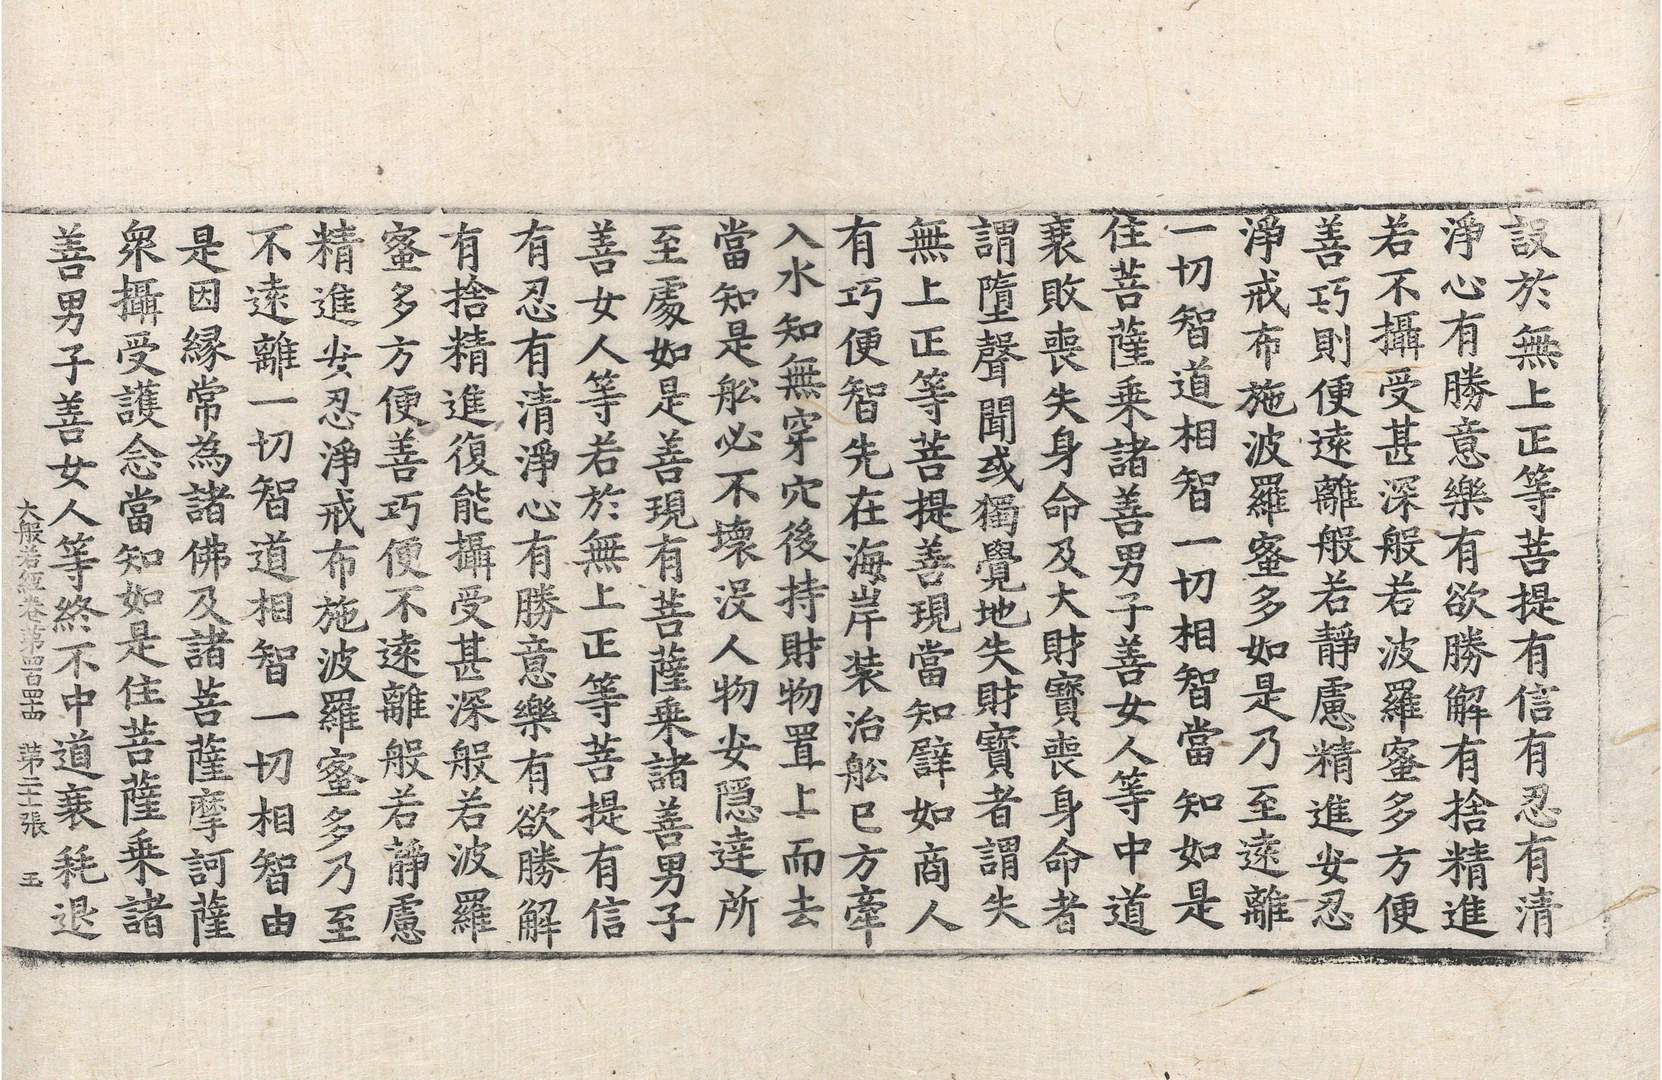 設於無上正等菩提有信有忍有清
淨心有勝意樂有欲勝解有捨精進
若不攝受甚深般若波羅蜜多方便
善巧則便遠離般若靜慮精進安忍
淨戒布施波羅蜜多如是乃至遠離
一切智道相智一切相智當知如是
住菩薩乘諸善男子善女人等中道
衰敗喪失身命及大財寶喪身命者
謂墮聲聞或獨覺地失財寶者謂失
無上正等菩提善現當知譬如商人
有巧便智先在海岸裝治舩已方牽
入水知無穿穴後持財物置上而去
當知是舩必不壞沒人物安隱達所
至處如是善現有菩薩乘諸善男子
善女人等若於無上正等菩提有信
有忍有清淨心有勝意樂有欲勝解
有捨精進復能攝受甚深般若波羅
蜜多方便善巧便不遠離般若靜慮
精進安忍淨戒布施波羅蜜多乃至
不遠離一切智道相智一切相智由
是因緣常為諸佛及諸菩薩摩訶薩
衆攝受護念當知如是住菩薩乘諸
善男子善女人等終不中道衰耗退
大般若經卷第四百四十四 第二十張 玉